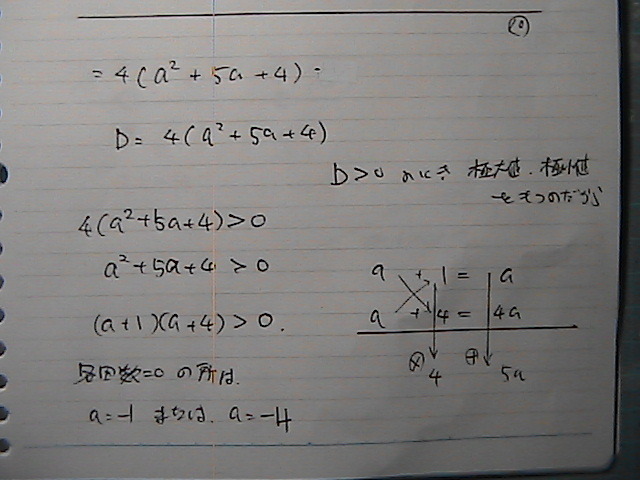 = 4(a² + 5a + 4)
D = 4(a² + 5a + 4)
D > 0 のとき 極大値、極小値
をもつのだから
4(a² + 5a + 4) > 0
a² + 5a + 4 > 0
(a + 1)(a + 4) > 0.
各因数 = 0 の所は、
a = -1 または、a = -4
a + 1 = a
a + 4 = 4a
⊗ 4 ⊕ 5a